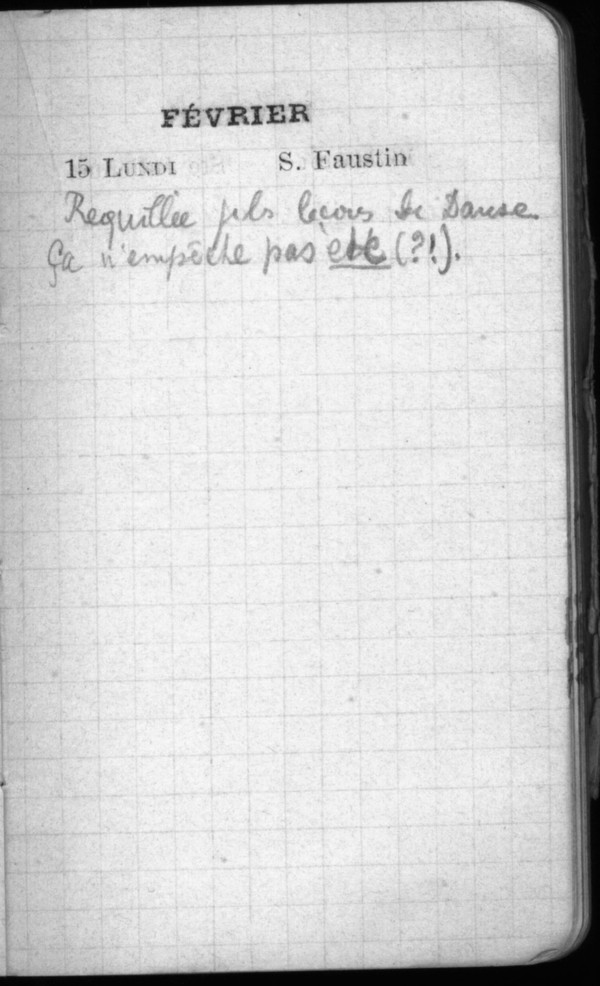 FÉVRIER
15 LUNDI S. Faustin
Requillée fils leçons de Danse.
Ça n'empêche pas etc (?!).